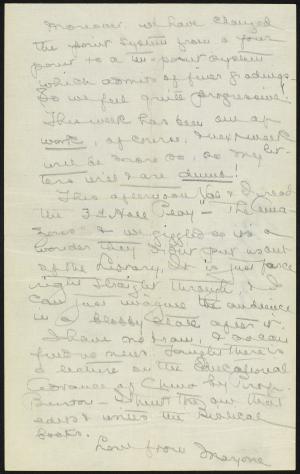 Moreover we have changed
the point system from a four
point to a six-point system
which admits of finer gradings
So we feel quite progressive.
This week has been one of
work, of course, & next week
will be more so, so my let-
ters will & are dumb!
This afternoon & I read
the Hall Play — The Ama-
zons & we giggled so it's a
wonder they didn't put us out
of the Library. It is just farce
right straight through, & I
can just imagine the audience
in a state after it.
I have no train, & so can
find no news. Tonight there is
a lecture on the Educational
of China by Prof.
Burton — I think the one that
edits & writes the Biblical
books.
Love from Marjorie